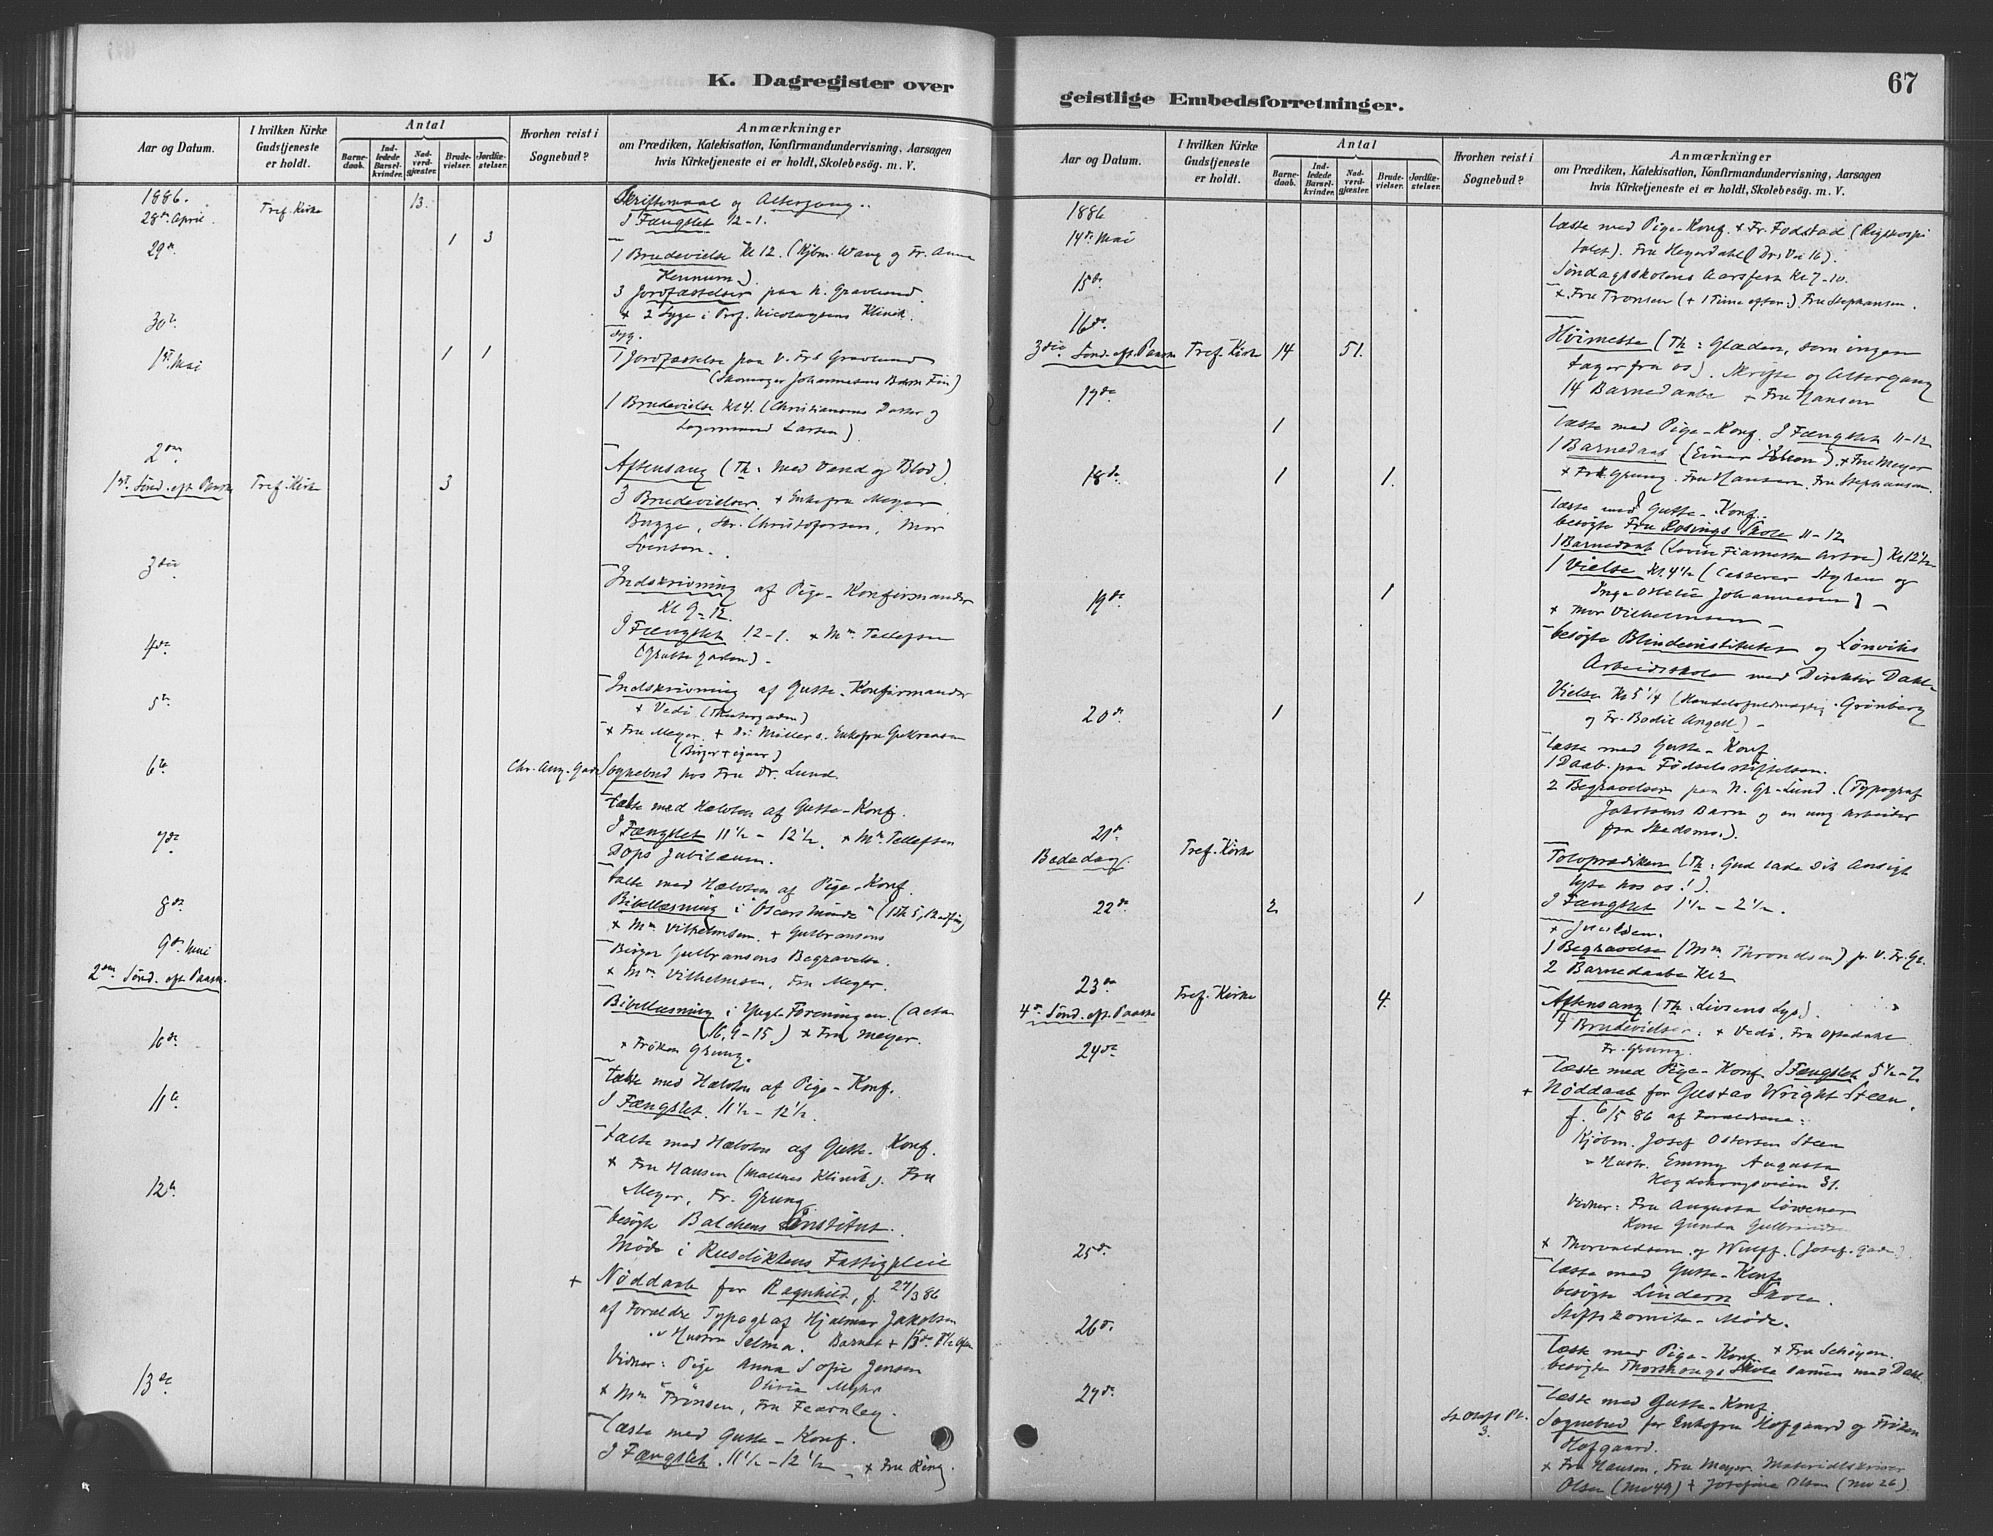 67
K. Dagregister over
geistlige Embedsforretninger.
Aar og Datum.
I hvilken Kirke
Gudstjeneste
er holdt.
Antal
Barne-
daab.
Ind-
ledede
Barsel-
kvinder.
Nad-
verd-
gjæster.
Brude-
vielser.
Jordfæ-
stelser.
Hvorhen reist i
Sognebud?
Anmærkninger
om Prædiken, Katekisation, Konfirmandundervisning, Aarsagen
hvis Kirketjeneste ei er holdt, Skolebesøg. m. V.
1886.
28de April Tref. Kirke 13. Skriftemaal og Altergang.
I Fængslet 12-1.
29de 1 3
1 Brudevielse Kl 12. (Kjbm. Wang og Fr. Anna
Hennum)
3 Jordfæstelser paa N. Gravlund.
+ 2 Syge i Prof. Nicolaysens Klinik.
30te
syg.
1ste Mai 1 1 1 Jordfæstelse paa V. Frs Gravlund
(Skomager Johannesens Barn Finn)
1 Brudevielse Kl 4. (Christiansens Datter og
Lagermand Larsen).
2den
1ste Sönd. eft. Paaske Tref. Kirke 3 Aftensang (Th: Med Vand og Blod)
3 Brudevielser. + Enkefru Meyer
Bugge, Hr. Christofersen, Mor
Svensen.
3die
Indskrivning af Pige-Konfirmander
Kl 9-12.
I Fængslet 12-1. + Mm Tellefsen
(Grubbegaden) -
4de
Indskrivning af Gutte-Konfirmander
+ Vedö (Theatergaden)
5te
+ Fru Meyer. + Enkefru Gulbransen
6te Chr. Aug. Gade Sognebud hos Fru Dr. Lund.
Læste med Halvten af Gutte-Konf.
I Fængslet 11½ - 12½. + Mm Tellefsen
7de
Dops Jubilæum.
Læste med Halvten af Pige-Konf.
8de
Bibellæsning i "Oscars Minde"
+ Mm Vilhelmsen. + Gulbransens
9de Mai
2den Sönd. eft. Paaske.
Birger Gulbransens Begravelse.
+ Mm Vilhelmsen, Fru Meyer.
Bibellæsning i Ynglefereningen. (Acta
16, 9-15.) + Fru Meyer.
+ Fröken Grung.
10de
Læste med Halvten af Pige-Konf.
I Fængslet. 11½ - 12½.
11te
Læste med Halvten af Gutte-Konf.
+ Fru Hansen (Malthes Klinik). Fru
Meyer, Fr. Grung
12te
besögte Balchens Institut.
Möde i Ruselökkens Fattigpleie
+ Nöddaab for Ragnhild, f. 27/3 86
af Forældre Typograf Hjalmar Jakobsen
og Hustru Selma. Barnet + 13de
Vidner: Pige Anna Sofie Jensen
Olivia Myhr
+ Mm Trönsen, Fru Fearnley.
13de
Læste med Gutte-Konf.
I Fængslet. 11½ - 12½ - + Fru Ring.
Aar og Datum.
I hvilken Kirke
Gudstjeneste
er holdt.
Antal
Barne-
daab.
Ind-
ledede
Barsel-
kvinder.
Nad-
verd-
gjæster.
Brude-
vielser.
Jordfæ-
stelser.
Hvorhen reist i
Sognebud?
Anmærkninger
om Prædiken, Katekisation, Konfirmandundervisning, Aarsagen
hvis Kirketjeneste ei er holdt, Skolebesög. m. V.
1886
14de Mai
Læste med Pige-Konf. + Fr. Fodstad (Rigshospi
talet). Fru Heyerdahl (Drs Vei 16).
15de
Söndagsskolens Aarsfest Kl 7-10.
+ Fru Tronsen (+ 1 Time efter.) Fru Stephansen.
16de
3die Sönd. eft. Paaske Tref. Kirke 14 51. Höimesse (Th: Glæden, som ingen
tager fra os). Skrifte og Altergang
14 Barnedaabe + Fru Hansen
17de
1 Læste med Pige-Konf. I Fængslet 11-12
1 Barnedaab (Einar Olsen). + Fru Meyer
+ Frk Grung. Fru Hansen. Fru Stephansen.
18de 1 1.
Læste med Gutte-Konf.
besögte Fru Rosings Skole 11-12
1 Barnedaab Kl 12½
1 Vielse Kl. 4½ (Casserer Styren og
Inga Othilie Johannesen) -
+ Mor Vilhelmsen -
19de 1
besögte Blindeinstitutet og Lönviks
Arbeidsskole med Direktör Dahl.
Vielse Kl 5¼ (Handelsfuldmægtig Grönberg
og Fr. Bodil Angell) -
20de 1
Læste med Gutte-Konf
1 Daab paa Födselsstiftelsen.
2 Begravelser paa N. Gr-Lund. (Typograf
Jakobsens Barn og en ung Arbeider
fra Skedsmo.).
21de
Bededag. Tref. Kirke
Tolvprædiken (Th: Gud lade Dit Ansigt
lyse hos os!).
I Fængslet 1½ - 2½.
22de 2 1
1 Begravelse (Mm Throndsen) p. V. Fr. Gr.
2 Barnedaabe Kl 2
23de
4de Sönd. eft. Paaske Tref. Kirke 4. Aftensang (Th: Livsens Lys).
4 Brudevielser: + Vedö, Fru Opsdahl
Fr. Grung.
24de
Læste med Pige-Konf. I Fængslet 5½-7.
+ Nöddaab for Gustav Wright Steen,
f. 6/5 86 af Forældrene:
Kjöbm. Josef Ostersen Steen
og Hustr. Emmy Augusta
Hegdehaugsveien 31.
Vidner: Fru Augusta Lövener
Kone Gunda Gulbrandsen
+ Thorvaldsen og Wulff. (Josef. Gade)
25de
Læste med Gutte-Konf
besögte Linderns Skole.
Stiftskomite-Möde.
26de
Læste med Pige-Konf + Fru Schöyen.
besögte Thorshaugs Skole sammen med Dahl.
27de
Læste med Gutte-Konf
St. Olafs Pl.
3. Sognebud for Enkefru Hofgaard og Fröken
Hofgaard.
+ Fru Hansen, Fru Meyer. Materialskriver
Olsen (Mv 49) + Josefine Olsen (Mv 26)